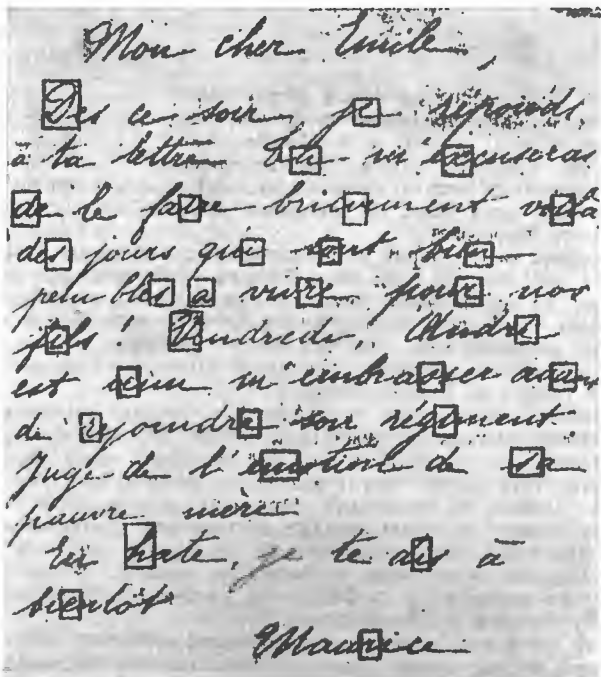 Mon cher Emile,
Dès ce soir, je réponds
à ta lettre Tu m'excuseras
de le faire brièvement voilà
des jours qui sont bien
penibles à vivre pour nos
fils ! Vendredi, André
est venu m'embrasser avant
de rejoindre son régiment.
Juge de l'émotion de sa
pauvre mère
En hate, je te dis à
bientôt
Maurice